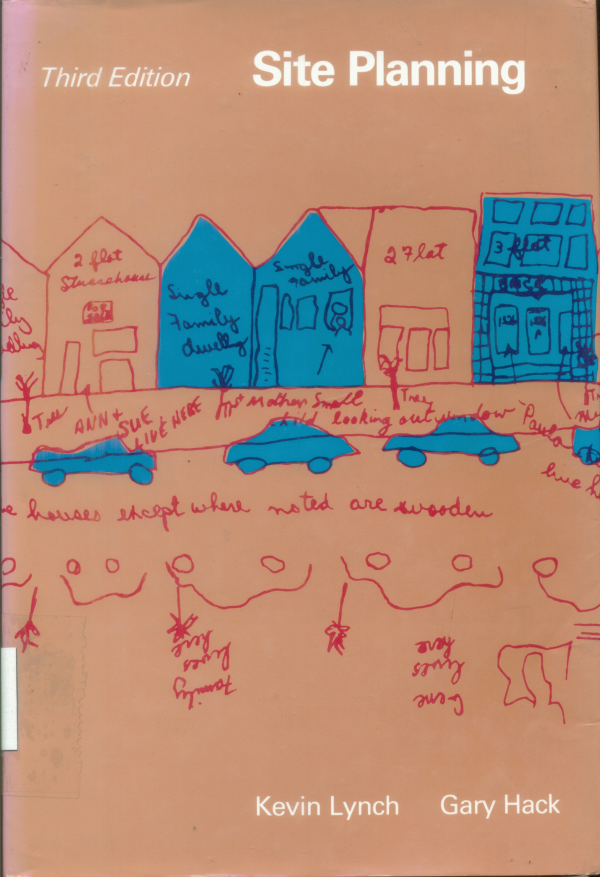 Third Edition
Site Planning
2 flat
Stuccohouse
FOR
SALE
Single
Family
dwelling
Single
Family
2 Flat
3 flat
Tree
ANN +
SUE
LIVE HERE
Mother, Small
child looking out window
Tree
Paula
live h
e houses except where noted are wooden
family
lives
here
Gene
lives
here
Kevin Lynch
Gary Hack